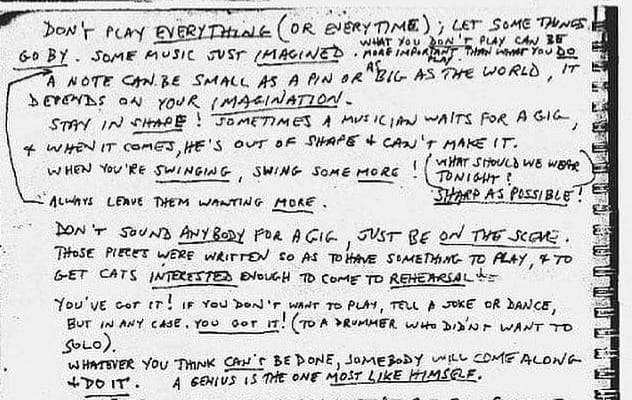 DON'T PLAY EVERYTHING (OR EVERYTIME); LET SOME THINGS
GO BY. SOME MUSIC JUST IMAGINED.
WHAT YOU DON'T PLAY CAN BE
MORE IMPORTANT THAN WHAT YOU DO
PLAY.
A NOTE CAN BE SMALL AS A PIN OR AS BIG AS THE WORLD, IT
DEPENDS ON YOUR IMAGINATION.
STAY IN SHAPE! SOMETIMES A MUSICIAN WAITS FOR A GIG,
& WHEN IT COMES, HE'S OUT OF SHAPE & CAN'T MAKE IT.
WHEN YOU'RE SWINGING, SWING SOME MORE!
(WHAT SHOULD WE WEAR
TONIGHT?
SHARP AS POSSIBLE!)
ALWAYS LEAVE THEM WANTING MORE.
DON'T SOUND ANYBODY FOR A GIG, JUST BE ON THE SCENE.
THOSE PIECES WERE WRITTEN SO AS TO HAVE SOMETHING TO PLAY, & TO
GET CATS INTERESTED ENOUGH TO COME TO REHEARSAL!
YOU'VE GOT IT! IF YOU DON'T WANT TO PLAY, TELL A JOKE OR DANCE,
BUT IN ANY CASE, YOU GOT IT! (TO A DRUMMER WHO DIDN'T WANT TO
SOLO).
WHATEVER YOU THINK CAN'T BE DONE, SOMEBODY WILL COME ALONG
& DO IT. A GENIUS IS THE ONE MOST LIKE HIMSELF.